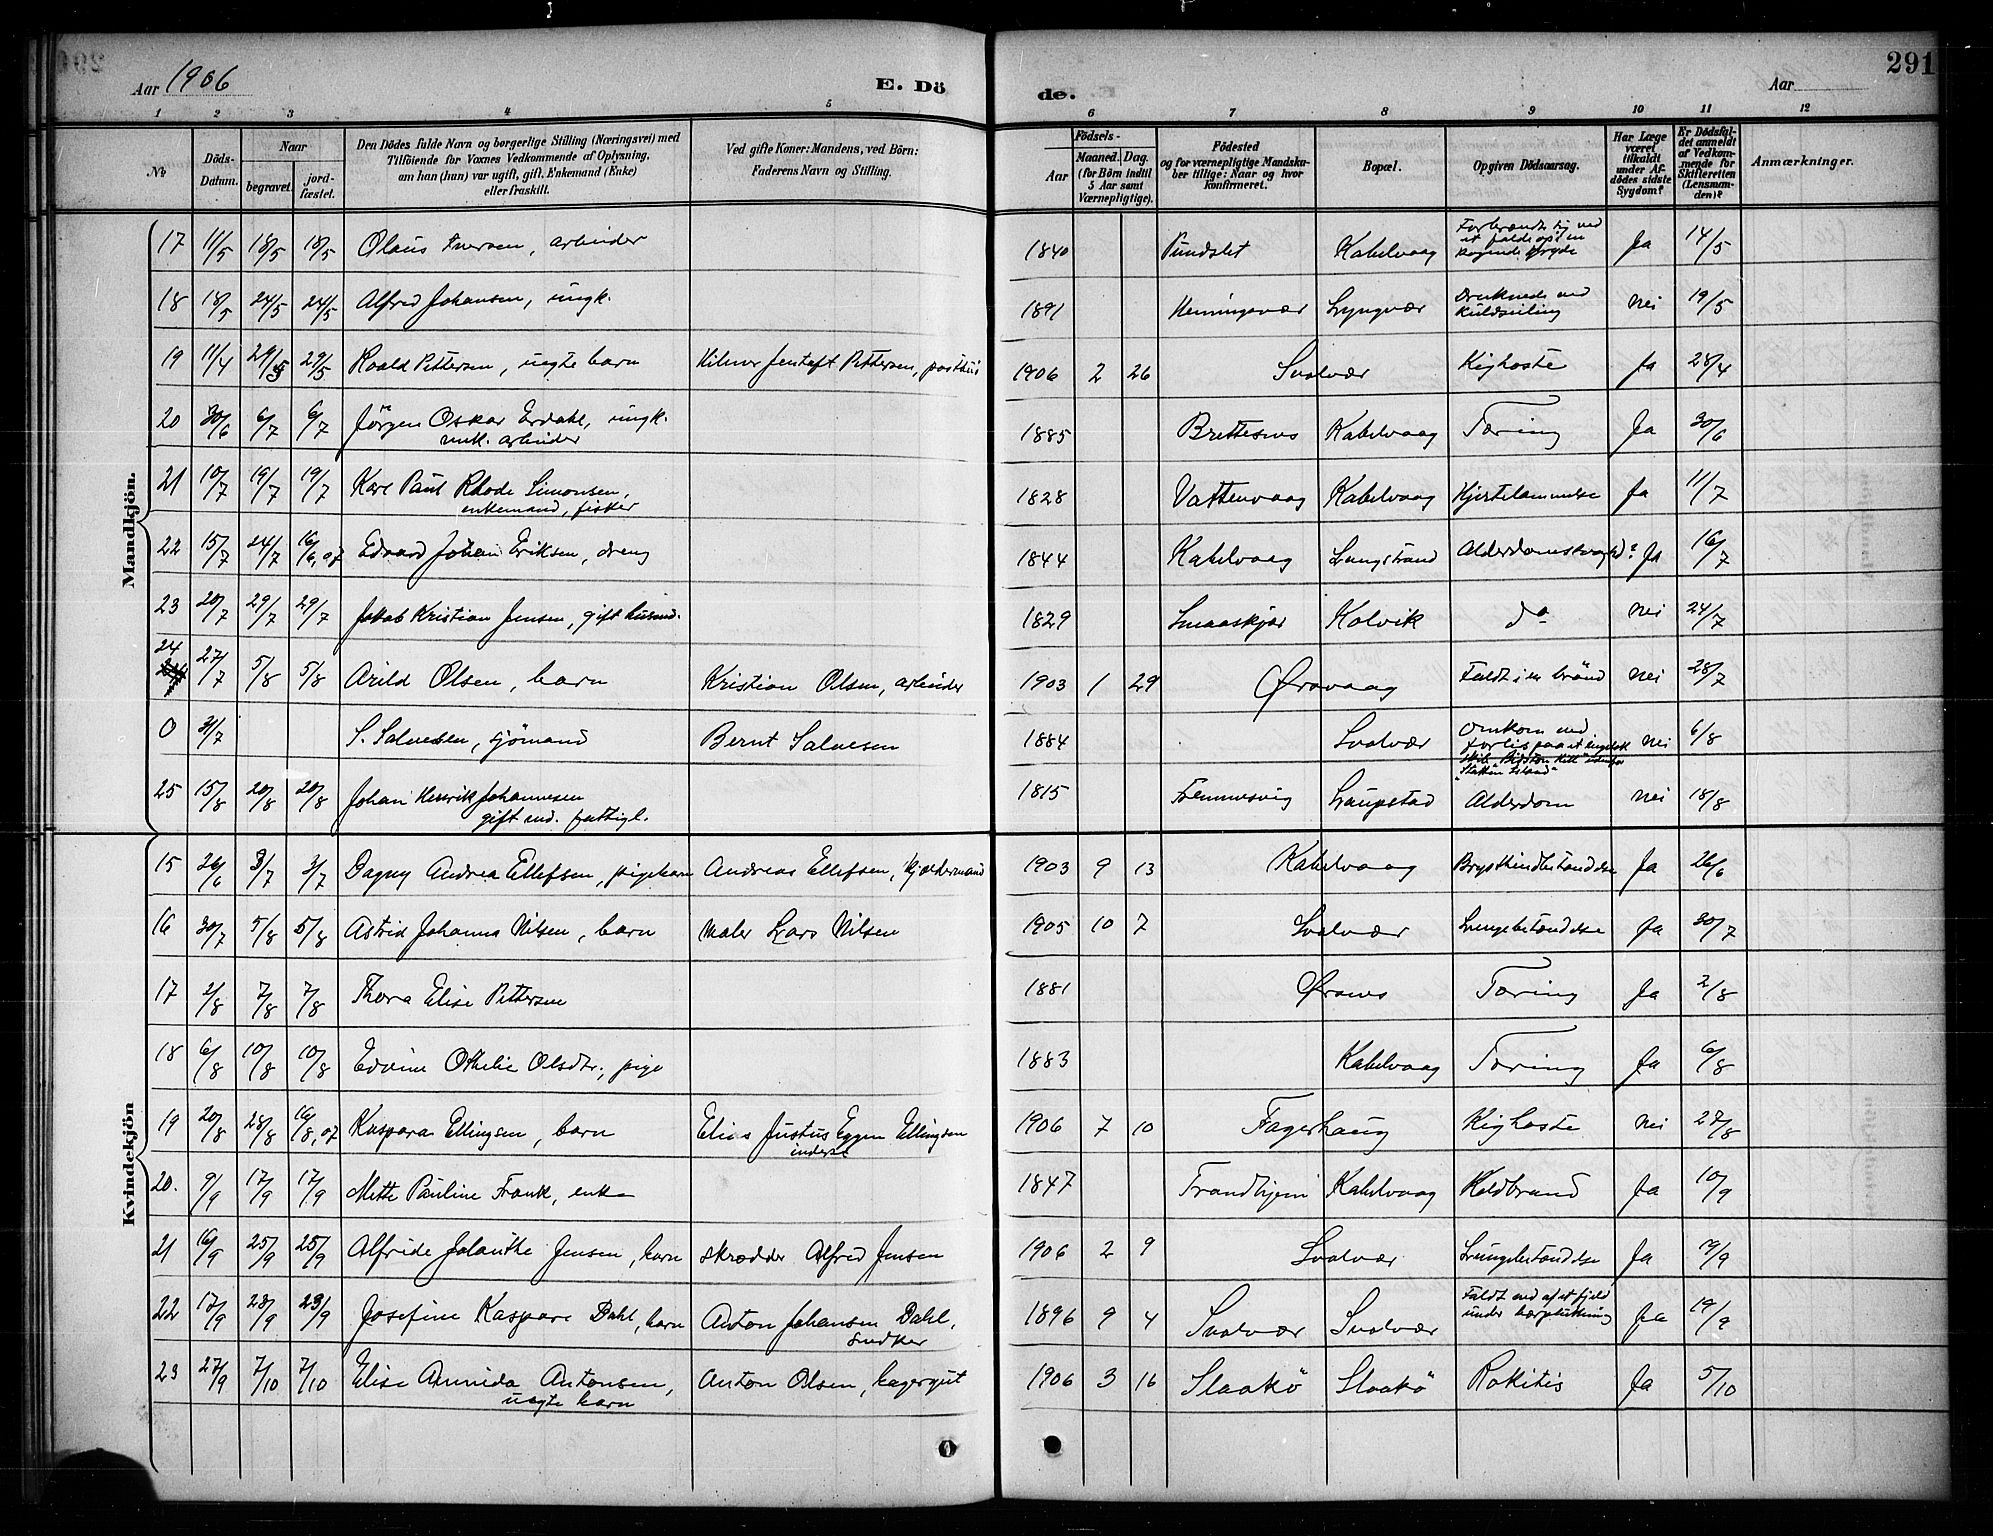 291
Aar 1906
E. Dö
de.
Aar
1 2 3 4 5 6 7 8 9 10 11 12
№
Döds-Datum.
Naar
begravet.
jord-fæstet.
Den Dödes fulde Navn og borgerlige Stilling (Næringsvei) med
Tilföiende for Voxnes Vedkommende af Oplysning,
om han (hun) var ugift, gift, Enkemand (Enke)
eller fraskilt.
Ved gifte Koner: Mandens, ved Börn:
Faderens Navn og Stilling.
Födsels-
Aar
Maaned. Dag.
(for Börn indtil
5 Aar samt
Værnepligtige).
Födested
og for værnepligtige Mandska-
ber tillige: Naar og hvor
konfirmeret.
Bopæl.
Opgiven Dödsaarsag.
Har Læge
været
tilkaldt
under Af-
dödes sidste
Sygdom?
Er Dödsfal-
det anmeldt
af Vedkom-
mende for
Skifteretten
(Lensman-
den)?
Anmærkninger.
Mandkjön.
17 11/5 18/5 18/5 Olaus Iversen, arbeider 1840 Pundslet Kabelvaag Forbrændte sig ved et fald op i en kogende gryde Ja 14/5
18 18/5 24/5 24/5 Alfred Johansen, ungk. 1891 Henningsvær Lyngvær Druknede ved kuldseiling nei 19/5
19 11/4 29/5 29/5 Roald Pettersen, uegte barn Hilmer Jentoft Pettersen, 1906 2 26 Svolvær Kighoste ja 28/4
20 30/6 6/7 6/7 Jörgen Oskar Erdahl, ungk. arbeider 1885 Brettesnes Kabelvaag Tæring Ja 30/6
21 10/7 19/7 19/7 Karl Paul Rhode Simonsen, enkemand, fisker 1828 Vattervaag Kabelvaag Hjertelammelse Ja 11/7
22 15/7 24/7 16/6, 07 Edvard Johan Eriksen, dreng 1844 Kabelvaag Langstrand Alderdomssvaghed? Ja 16/7
23 20/7 29/7 29/7 Jakob Kristian Jensen, gift husmd. 1829 Smaaskjær Kalvik do nei 24/7
24 27/7 5/8 5/8 Arild Olsen, barn Kristian Olsen, arbeider 1903 1 29 Örsvaag Faldt i en brönd nei 28/7
0 31/7 S. Salvesen, sjömand Bernt Salvesen 1884 Svolvær Omkom ved forlis paa et engelsk nei 6/8
25 15/8 20/8 20/8 Johan Henrik Johannesen gift md. fattigl. 1815 Tennesvig Laupstad Alderdom nei 18/8
Kvindekjön
15 26/6 3/7 3/7 Dagny Andrea Ellefsen, pigebarn Andreas Ellefsen, kjældermand 1903 9 13 Kabelvaag Brysthindebetændelse Ja 26/6
16 30/7 5/8 5/8 Astrid Johanna Nilsen, barn maler Lars Nilsen 1905 10 7 Svolvær Lungebetændelse ja 30/7
17 2/8 7/8 7/8 Thora Elise Pettersen 1881 Örsnes Tæring Ja 2/8
18 6/8 10/8 10/8 Edvine Othelie Olsdtr., pige 1883 Kabelvaag Tæring Ja 6/8
19 20/8 28/8 16/8, 07 Kaspara Ellingsen, barn Elias Justus Eggen Ellingsen inderst 1906 7 10 Fagerhaug Kighoste nei 27/8
20. 9/9 17/9 17/9 Mette Pauline Frank, enke 1847 Trondhjem Kabelvaag Koldbrand Ja 10/9
21 16/9 25/9 25/9 Alfride Jolanthe Jensen, barn skrædder Alfred Jensen 1906 2 9 Svolvær Lungebetændelse Ja 19/9
22 17/9 23/9 23/9 Josefine Kaspara Dahl, barn Anton Johansen Dahl, snedker 1896 9 4 Svolvær Svolvær Faldt ned af et fjeld under bærplukning ja 19/9
23 27/9 7/10 7/10 Elise Arnida Antonsen, uegte barn Anton Olsen, bagergut 1906 3 16 Slaakö Slaakö Rakitis Ja 5/10